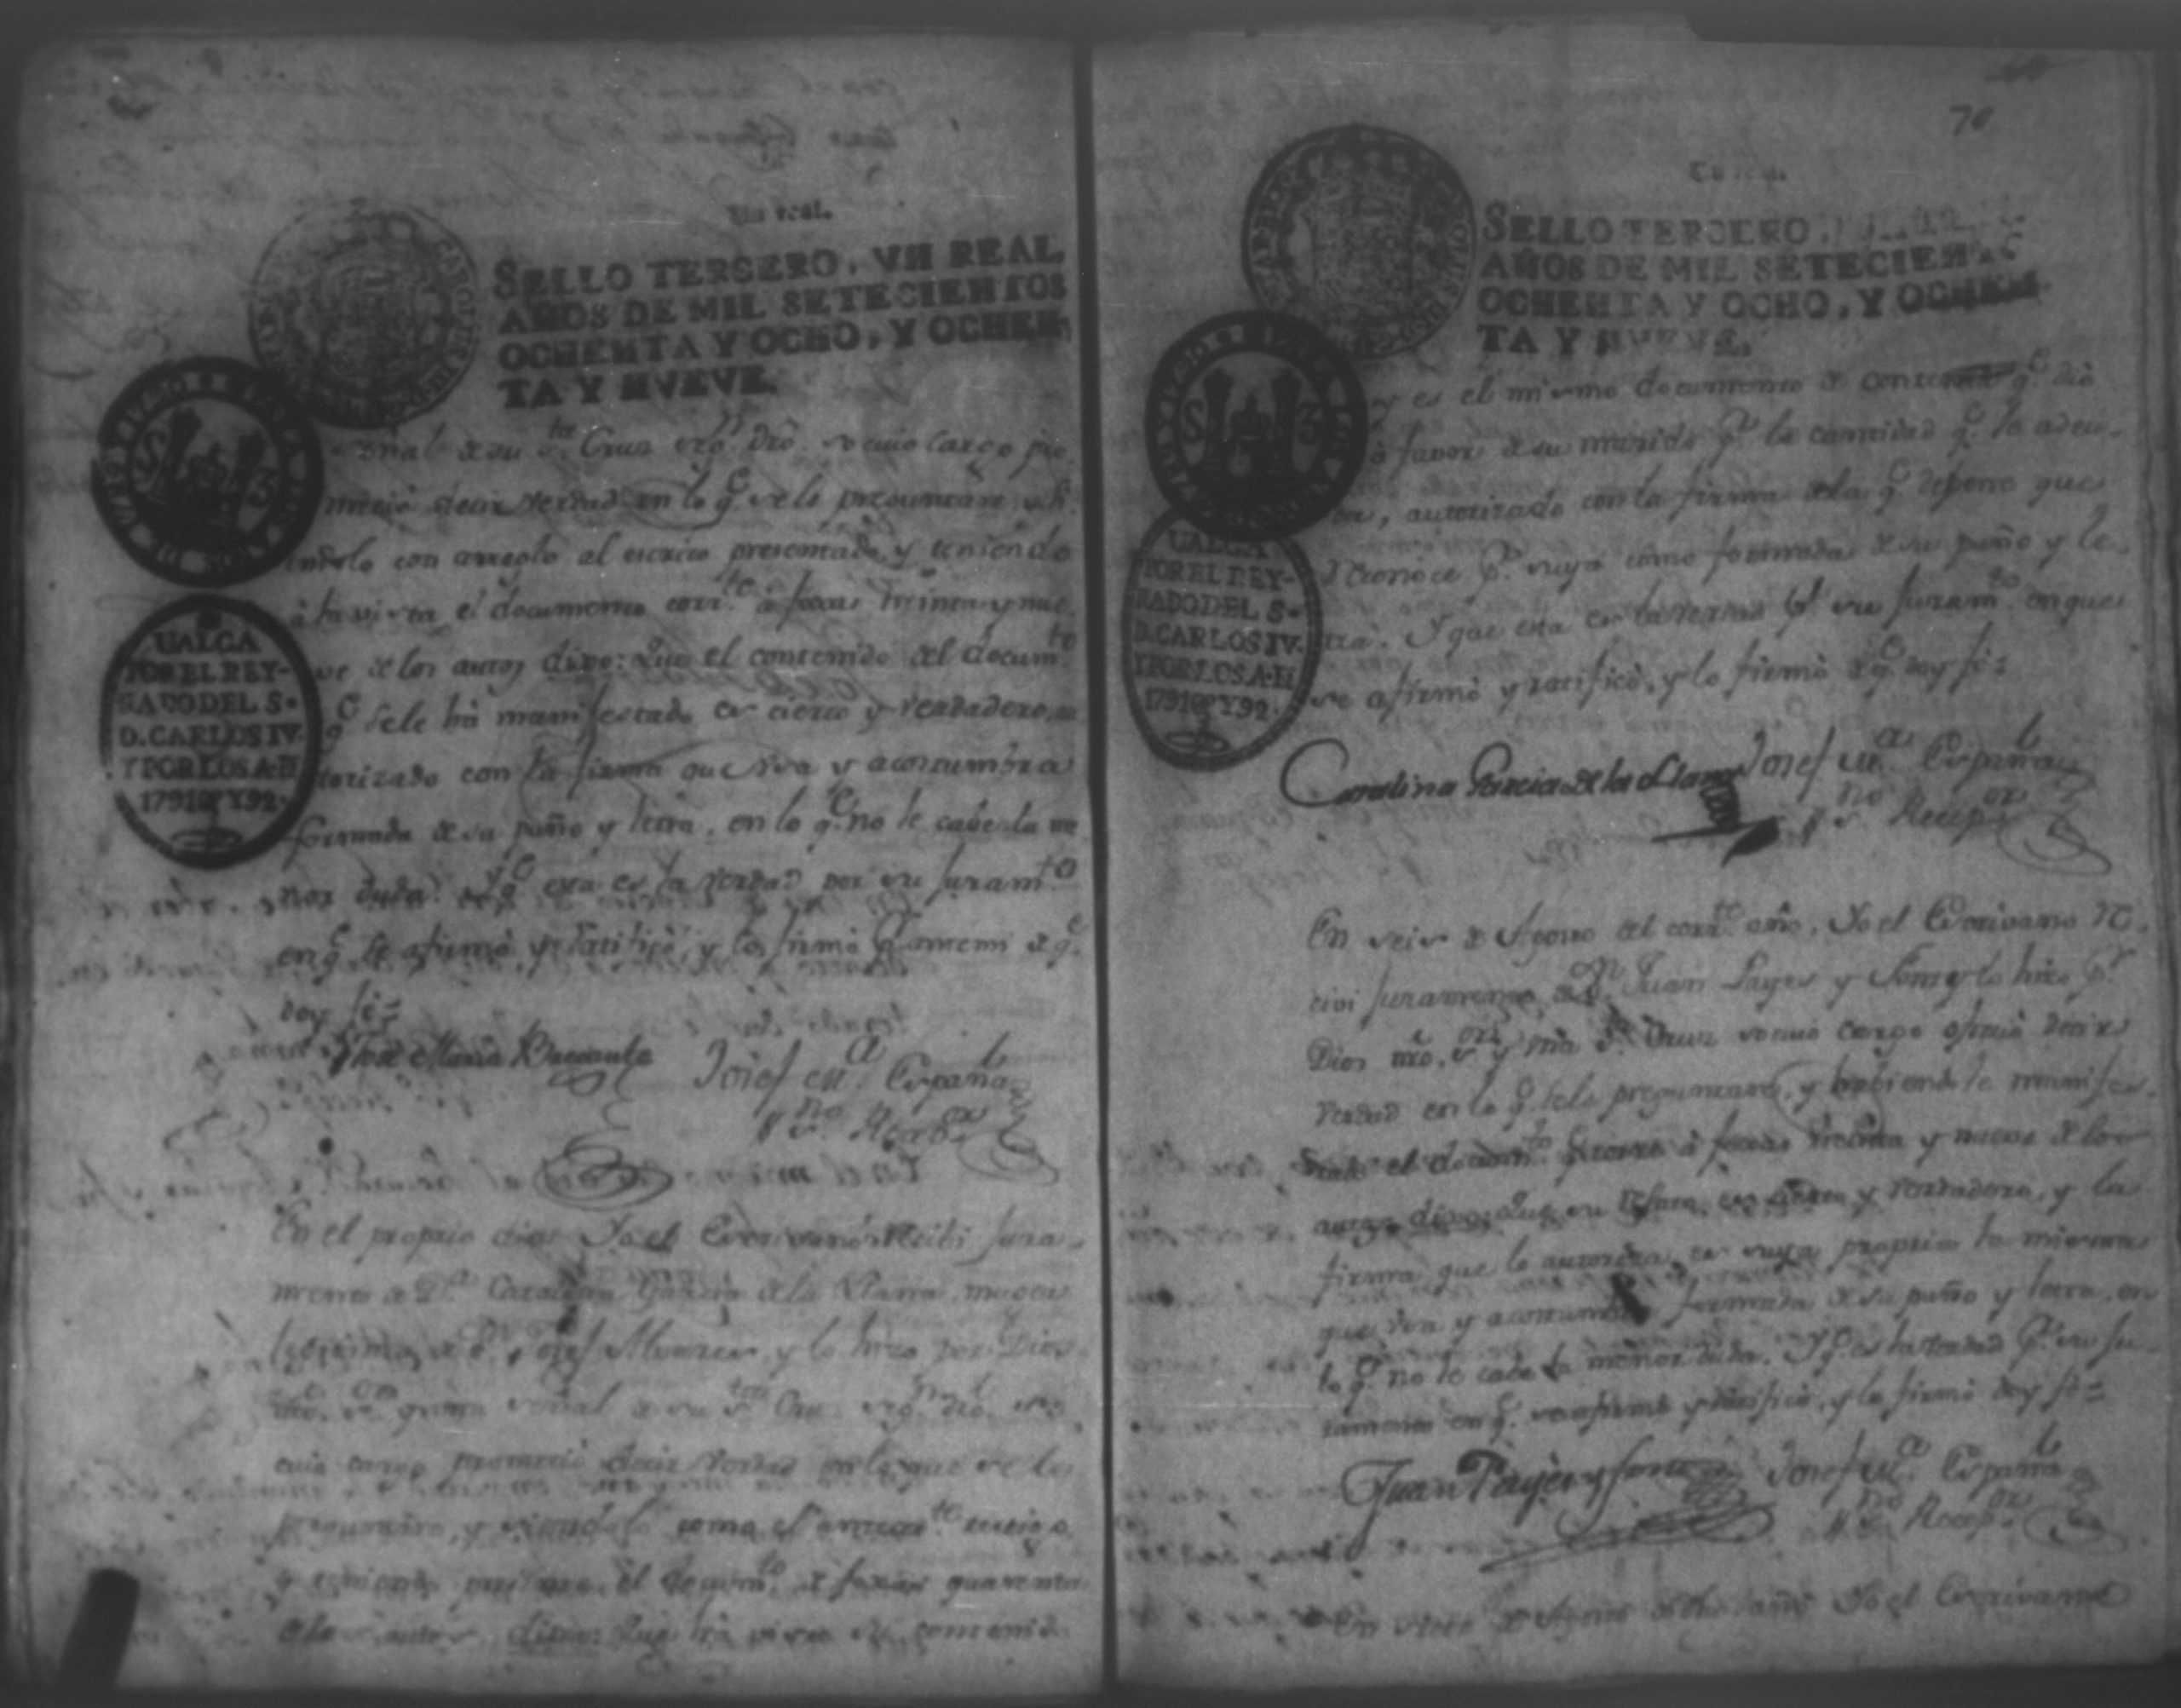 Un real.
SELLO TERCERO, VN REAL,
AÑOS DE MIL SETECIENTOS
OCHENTA Y OCHO, Y OCHEN-
TA Y NVEVE.
UALGA
POR EL REY-
NADO DEL S.
D. CARLOS IV.
Y POR LOS A. D
1791 Y 92.
señal de su s.ta Cruz seg.n dro. vo cuio cargo pro
metió decir verdad en lo q.e se le preguntare, 
endolo con arreglo al escrito presentado y teniendo
à la vista el documento corr.te à foxas treinta y nue
ve de los autos dixo: Que el contenido del docum.to
q.e se le há manifestado es cierto y verdadero,
torizado con la firma que usa y acostumbra
formada de su puño y letra, en lo q.e no le cabe la me
nor duda. y q.e esta es la verdad por su juram.to
en q.e se afirmó y ratificó, y lo firmó antemi de q.e
doy fé=
José Maria
Josef M.a España
S.no Recep.or
En el proprio dia: Yo el Escrivano Recibi jura-
mento de D.a Catalina Garcia de la Llana, muger
legitima de D.n Josef Alvarez, y lo hizo por Dios
nro. s.or y una señal de su s.ta Cruz seg.n dro. vo
cuio cargo prometió decir verdad en lo que se le
preguntare, y siendolo como el anteced.te testigo
y teniendo presente el docum.to de foxas quarenta
de los autos, dixo: Que há visto su contenido
70
Un real.
SELLO TERCERO,
AÑOS DE MIL SETECIENTOS
OCHENTA Y OCHO, Y OCHEN-
TA Y NVEVE.
UALGA
POR EL REY-
NADO DEL S.
D. CARLOS IV.
Y POR LOS A. D
1791 Y 92.
y es el mismo documento de q.e dió
à favor de su marido p.r la cantidad q.e le adeu-
da, autorizado con la firma de la q.e depone que
reconoce p.r suya como formada de su puño y le-
tra. Y que esta es la verdad p.r su juram.to en que
se afirmó y ratificó, y lo firmó de q.e doy fé=
Catalina Garcia de la Llana
Josef M.a España
S.no Recep.or
En seis de Agosto del corr.te año, Yo el Escrivano re-
civi juramento de D.n Juan Payes y lo hizo p.r
Dios nro. s.or y una s.l Cruz vo cuio cargo ofreció decir
verdad en lo q.e se le preguntare, y habiendole manifes-
tado el docum.to q.e corre à foxas treinta y nueve de los
autos dixo: Que su es cierto y verdadero, y la
firma que lo autoriza, es suya propria la misma
que usa y acostumbra formada de su puño y letra, en
lo q.e no le cabe la menor duda. Y q.e es la verdad p.r su ju-
ramento en q.e se afirmó y ratificó, y lo firmó doy fé=
Juan Payés y
Josef M.a España
S.no Recep.or
En siete de Agosto de dho. año Yo el Escrivano